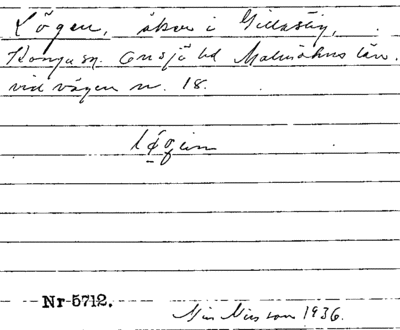 Lögen, åker i Gillastig,
Konga sn. Onsjö hd Malmöhus län.
vid vägen nr. 18.
løgen
Nr 5712.
Nils Nilsson 1936.